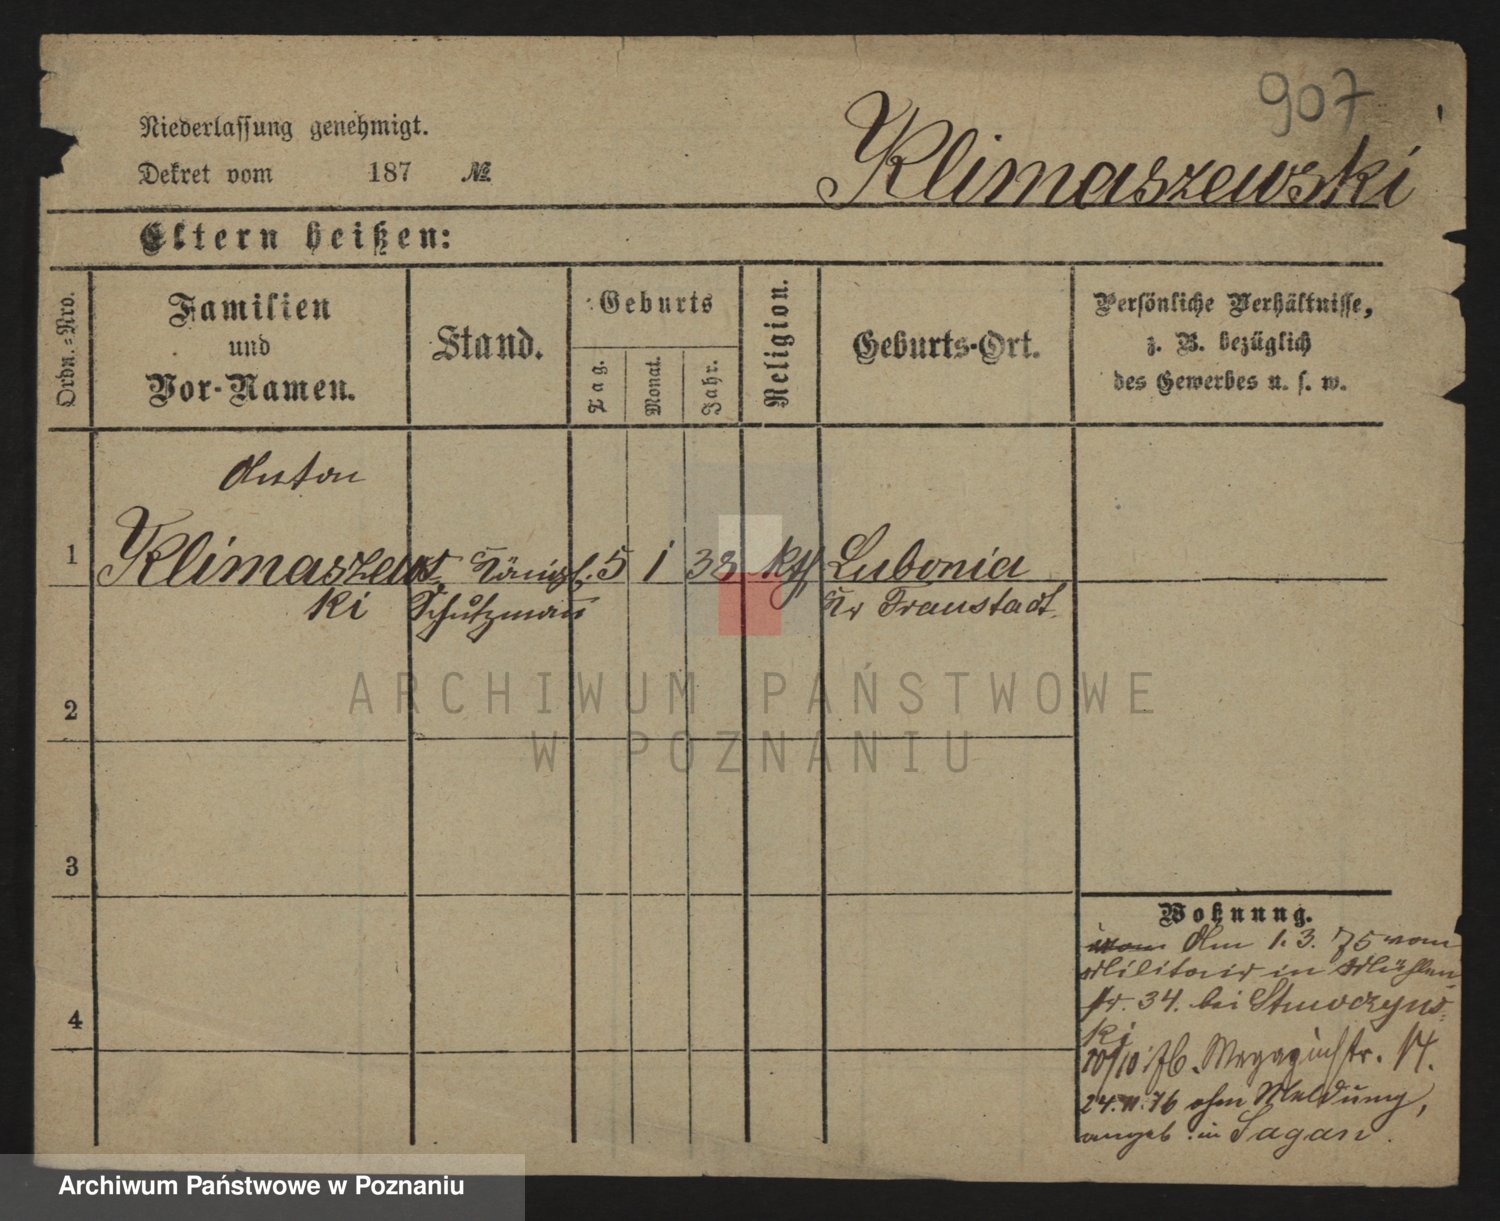 907
Niederlassung genehmigt.
Dekret vom 187 №
Klimaszewski
Eltern heißen:
Ordn.-Nro.
Familien
und
Vor-Namen.
Stand.
Geburts
Tag.
Monat.
Jahr.
Religion.
Geburts-Ort.
Persönliche Verhältnisse,
z. B. bezüglich
des Gewerbes u. s. w.
Anton
1 Klimaszews Königl. 5 1 38 kth Lubonia
ki Schutzmann Kr Fraustadt
2
3
4
Wohnung.
vom Am 1.3.75 vom
Militair in Mühlen
str. 34. bei
ki
10/10 76. Magazinstr. 14.
24.11.76 ohne Meldung,
angeb. in Sagan.
ARCHIWUM PAŃSTWOWE
W POZNANIU
Archiwum Państwowe w Poznaniu